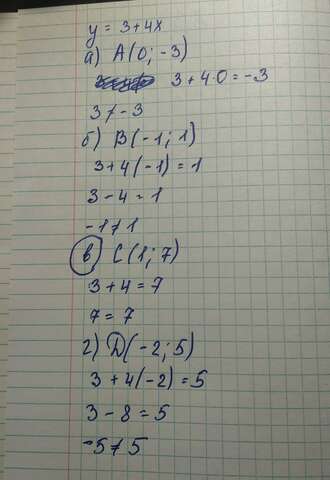 y = 3+4x
а) A(0; -3)
3+4·0=-3
3≠-3
б) B(-1; 1)
3+4(-1)=1
3-4=1
-1≠1
в) C(1; 7)
3+4=7
7=7
г) D(-2; 5)
3+4(-2)=5
3-8=5
-5≠5